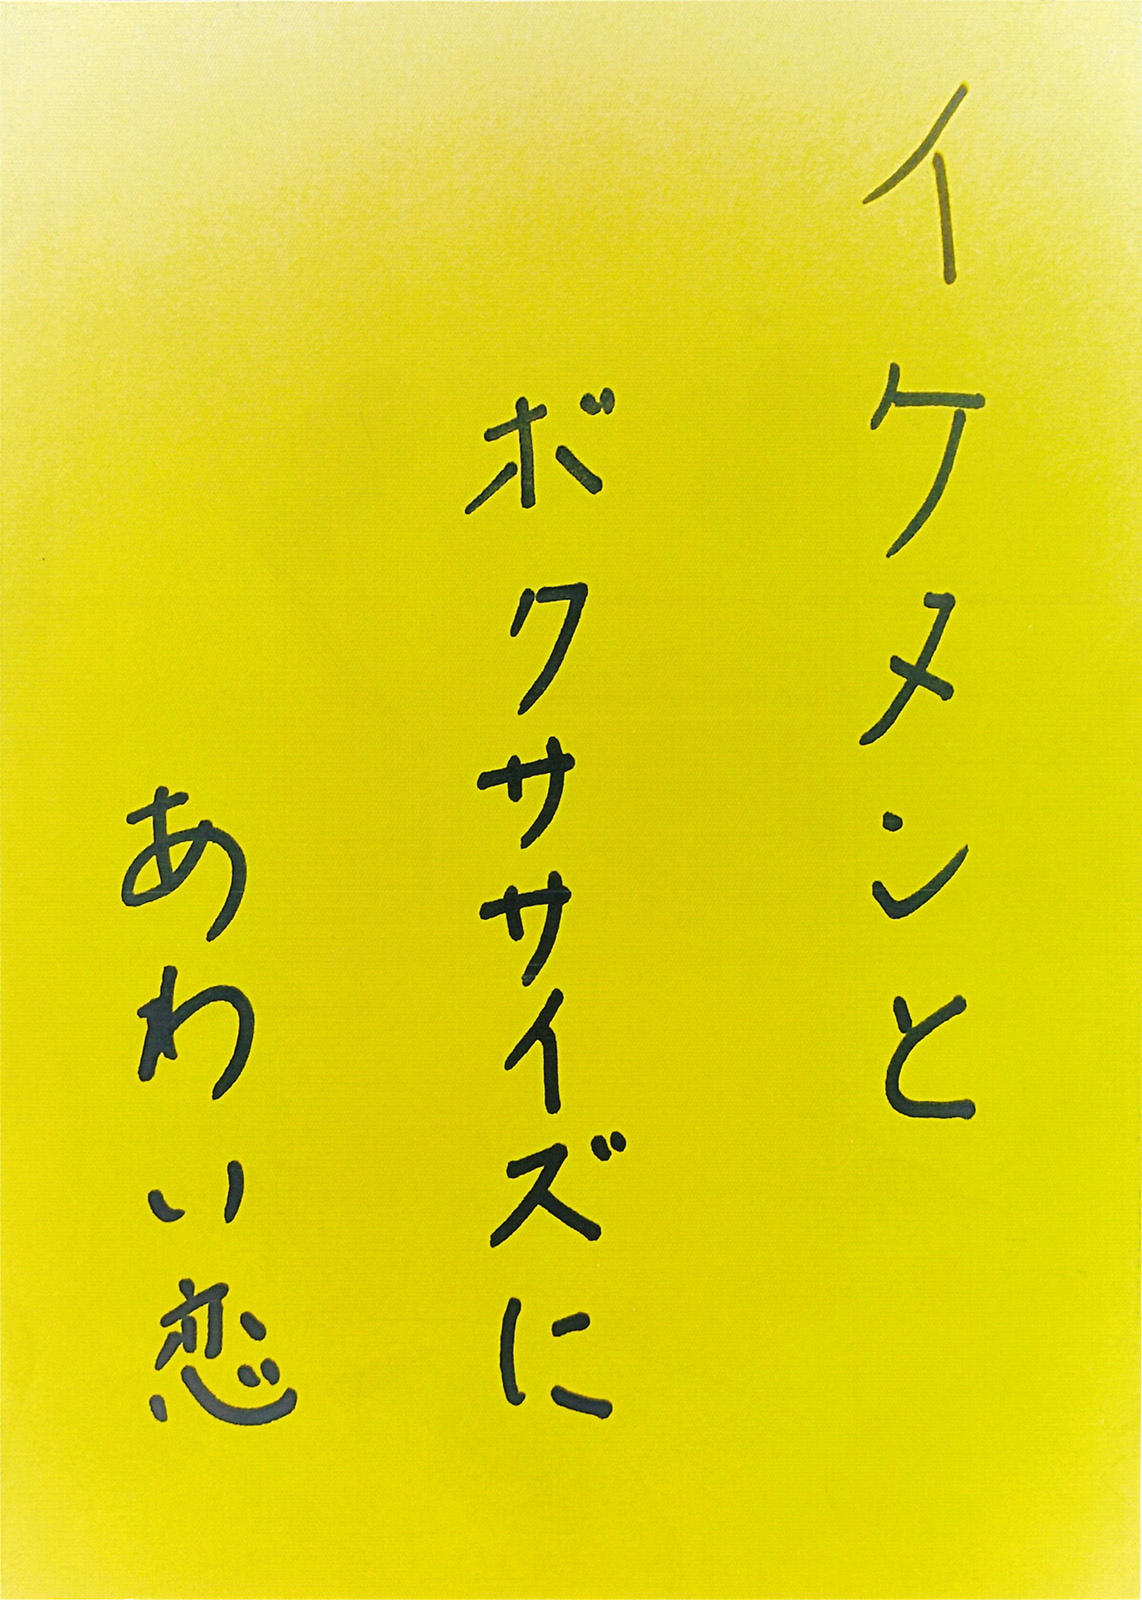 イケメンと
ボクササイズに
あわい恋